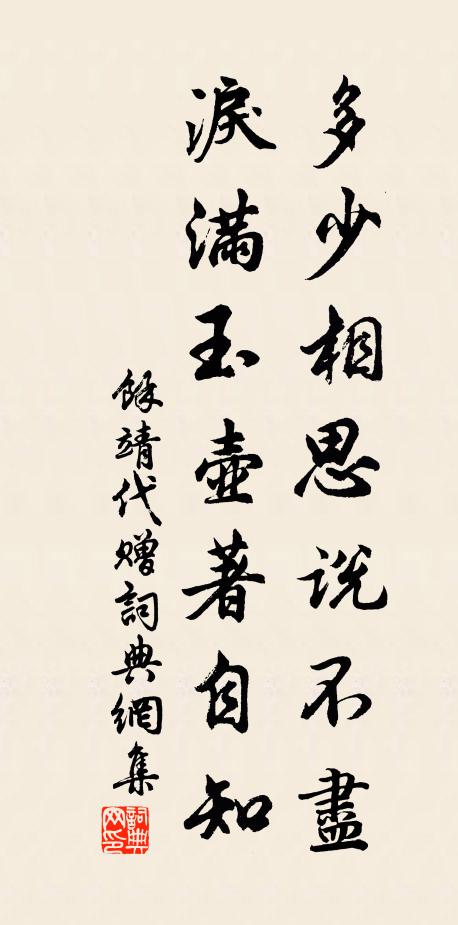 多少相思説不盡
淚滿玉壺著自知
餘靖代贈詞典網集
詞典網印